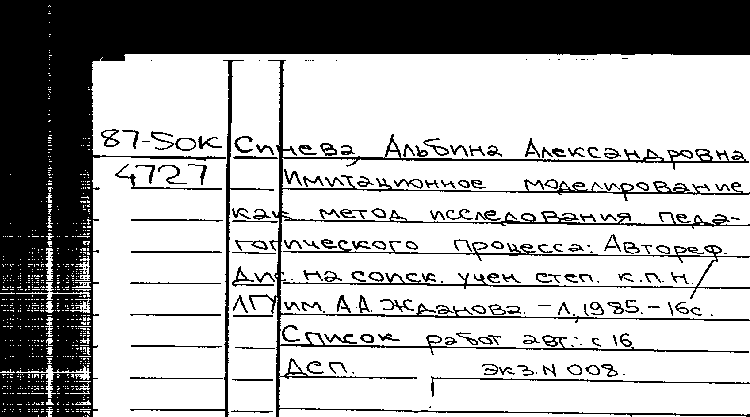 87-5ок Синева, Альбина Александровна
4727 Имитационное моделирование
как метод исследования педа-
гогического процесса: Автореф.
дис. на соиск. учен степ. к.п.н/
ЛГУ им. А.А. Жданова. - Л, 1985. - 16с.
Список работ авт.: с 16
ДСП. Экз. N 008.